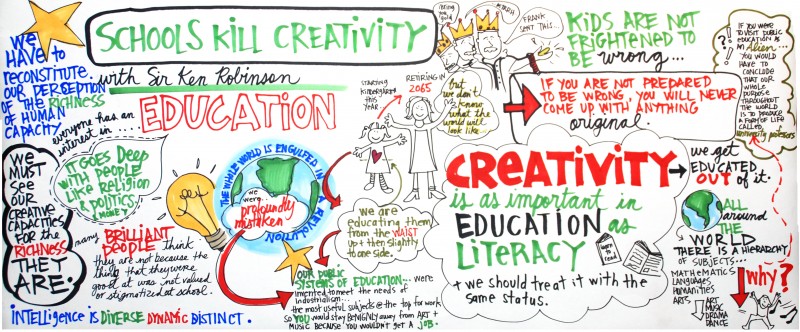 SCHOOLS KILL CREATIVITY
with Sir Ken Robinson
WE
HAVE to
reconstitute
OUR PERCEPTION
OF THE RICHNESS
OF HUMAN
CAPACITY.
everyone has an
interest in....
EDUCATION
IT GOES Deep
WITH PEOPLE
LIKE RELIGION
& POLITICS,
& MONEY
WE
MUST
SEE
OUR
CREATIVE
CAPACITIES
FOR THE
RICHNESS
THEY
ARE.
many BRILLIANT
PEOPLE think
they are not because the
thing that they were
good at was not valued
or stigmatized at school.
INTElligENCE is DIVERSE DYNAMIC DISTINCT.
THE WHOLE WORLD IS ENGULFED IN A REVOLUTION
we
were
profoundly
mistaken
STARTING
KINDERGARTEN
THIS YEAR
RETIRING IN
2065
but
we don't
know
what the
world will
look like...
we are
educating them
from the WAIST
up & then slightly
to one side.
OUR PUBLIC
SYSTEMS OF EDUCATION... were
invented to meet the needs of
industrialism...
the most useful subjects @ the top for work
SO YOU would stay BENIGNLY away from ART &
MUSIC BECAUSE YOU WOULDN'T GET A JOB.
I bring
you
gold
MYRRH
FRANK
SENT THIS...
KIDS ARE NOT
FRIGHTENED TO
BE wrong...
IF YOU ARE NOT PREPARED
TO BE WRONG, YOU WILL NEVER
COME UP WITH ANYTHING
original.
CREATIVITY
is as important in
EDUCATION as
LITERACY
& we should treat it with the
same status.
learn
to
read
we get
EDUCATED
OUT of it.
?!
IF YOU WERE
TO VISIT PUBLIC
EDUCATION AS
AN Alien...
YOU WOULD
HAVE TO
CONCLUDE
THAT OUR
WHOLE
PURPOSE
THROUGHOUT
THE WORLD
IS TO PRODUCE
A FORM OF LIFE
CALLED,
university professors
All
around
the
WORLD
THERE IS A HIERARCHY
OF SUBJECTS...
MATHEMATICS
LANGUAGES
HUMANITIES
ARTS
ART
MUSIC
DRAMA
DANCE
why?